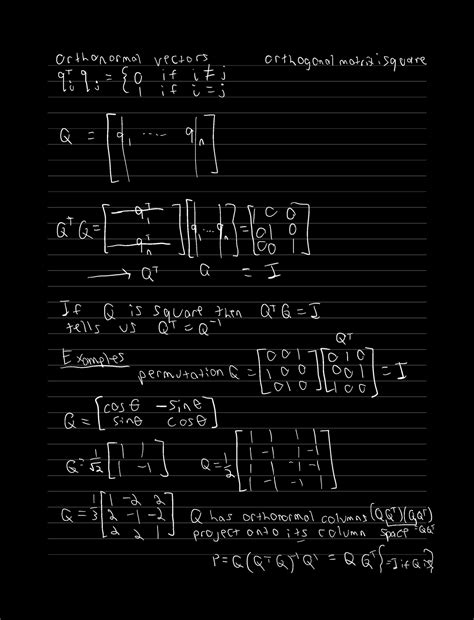 orthonormal vectors    orthogonal matrix: square
qᵢᵀ qⱼ = { 0 if i ≠ j
1 if i = j
Q = [ q₁ ..... qₙ ]
QᵀQ = [ q₁ᵀ qₙᵀ ] [ q₁ ... qₙ ] = [ 1 0 0
0 1 0
0 0 1 ]
→ Qᵀ Q = I
If Q is square then QᵀQ = I
tells us Qᵀ = Q⁻¹
Examples
Qᵀ
permutation Q = [ 0 0 1 ] [ 0 1 0 ] = I
[ 1 0 0 ] [ 0 0 1 ]
[ 0 1 0 ] [ 1 0 0 ]
Q = [ cosθ -sinθ ]
[ sinθ cosθ ]
Q = 1/√2 [ 1 1 ]    Q = 1/2 [ 1 1 1 1 ]
[ 1 -1 ]    [ 1 -1 1 -1 ]
[ 1 1 -1 -1 ]
[ 1 -1 -1 1 ]
Q = 1/3 [ 1 -2 2 ]
[ 2 -1 -2 ]
[ 2 2 1 ]
Q has orthonormal columns (QQᵀ)(QQᵀ)
project onto its column space = QQᵀ
P = Q(QᵀQ)⁻¹Qᵀ = QQᵀ { = I if Q is }